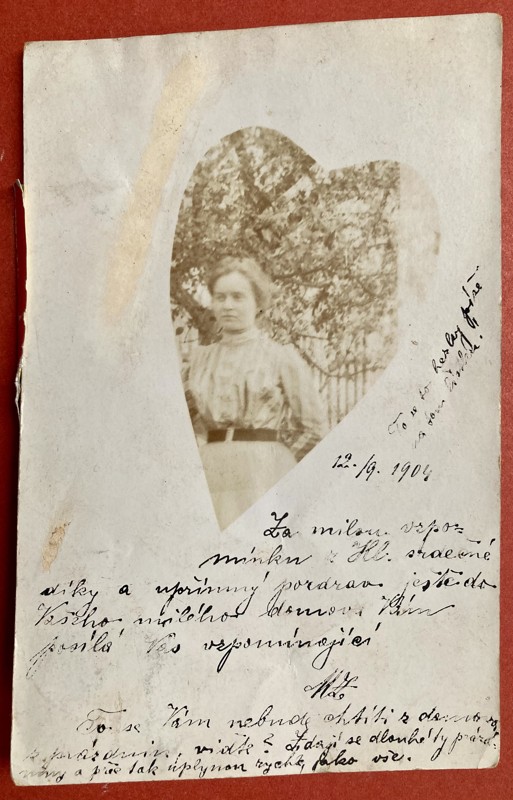 To se to hezky píše
na tom
12./9. 1904
Za milou vzpo-
mínku z Hl. srdečné
díky a upřímný pozdrav ještě do
Vašeho milého domova Vám
posílá Vás vzpomínající
MZ
To se Vám nebude chtíti z domova
z prázdnin, viďte? Zdají se dlouhé ty prázd-
niny a pře tak uplynou rychle jako vše.